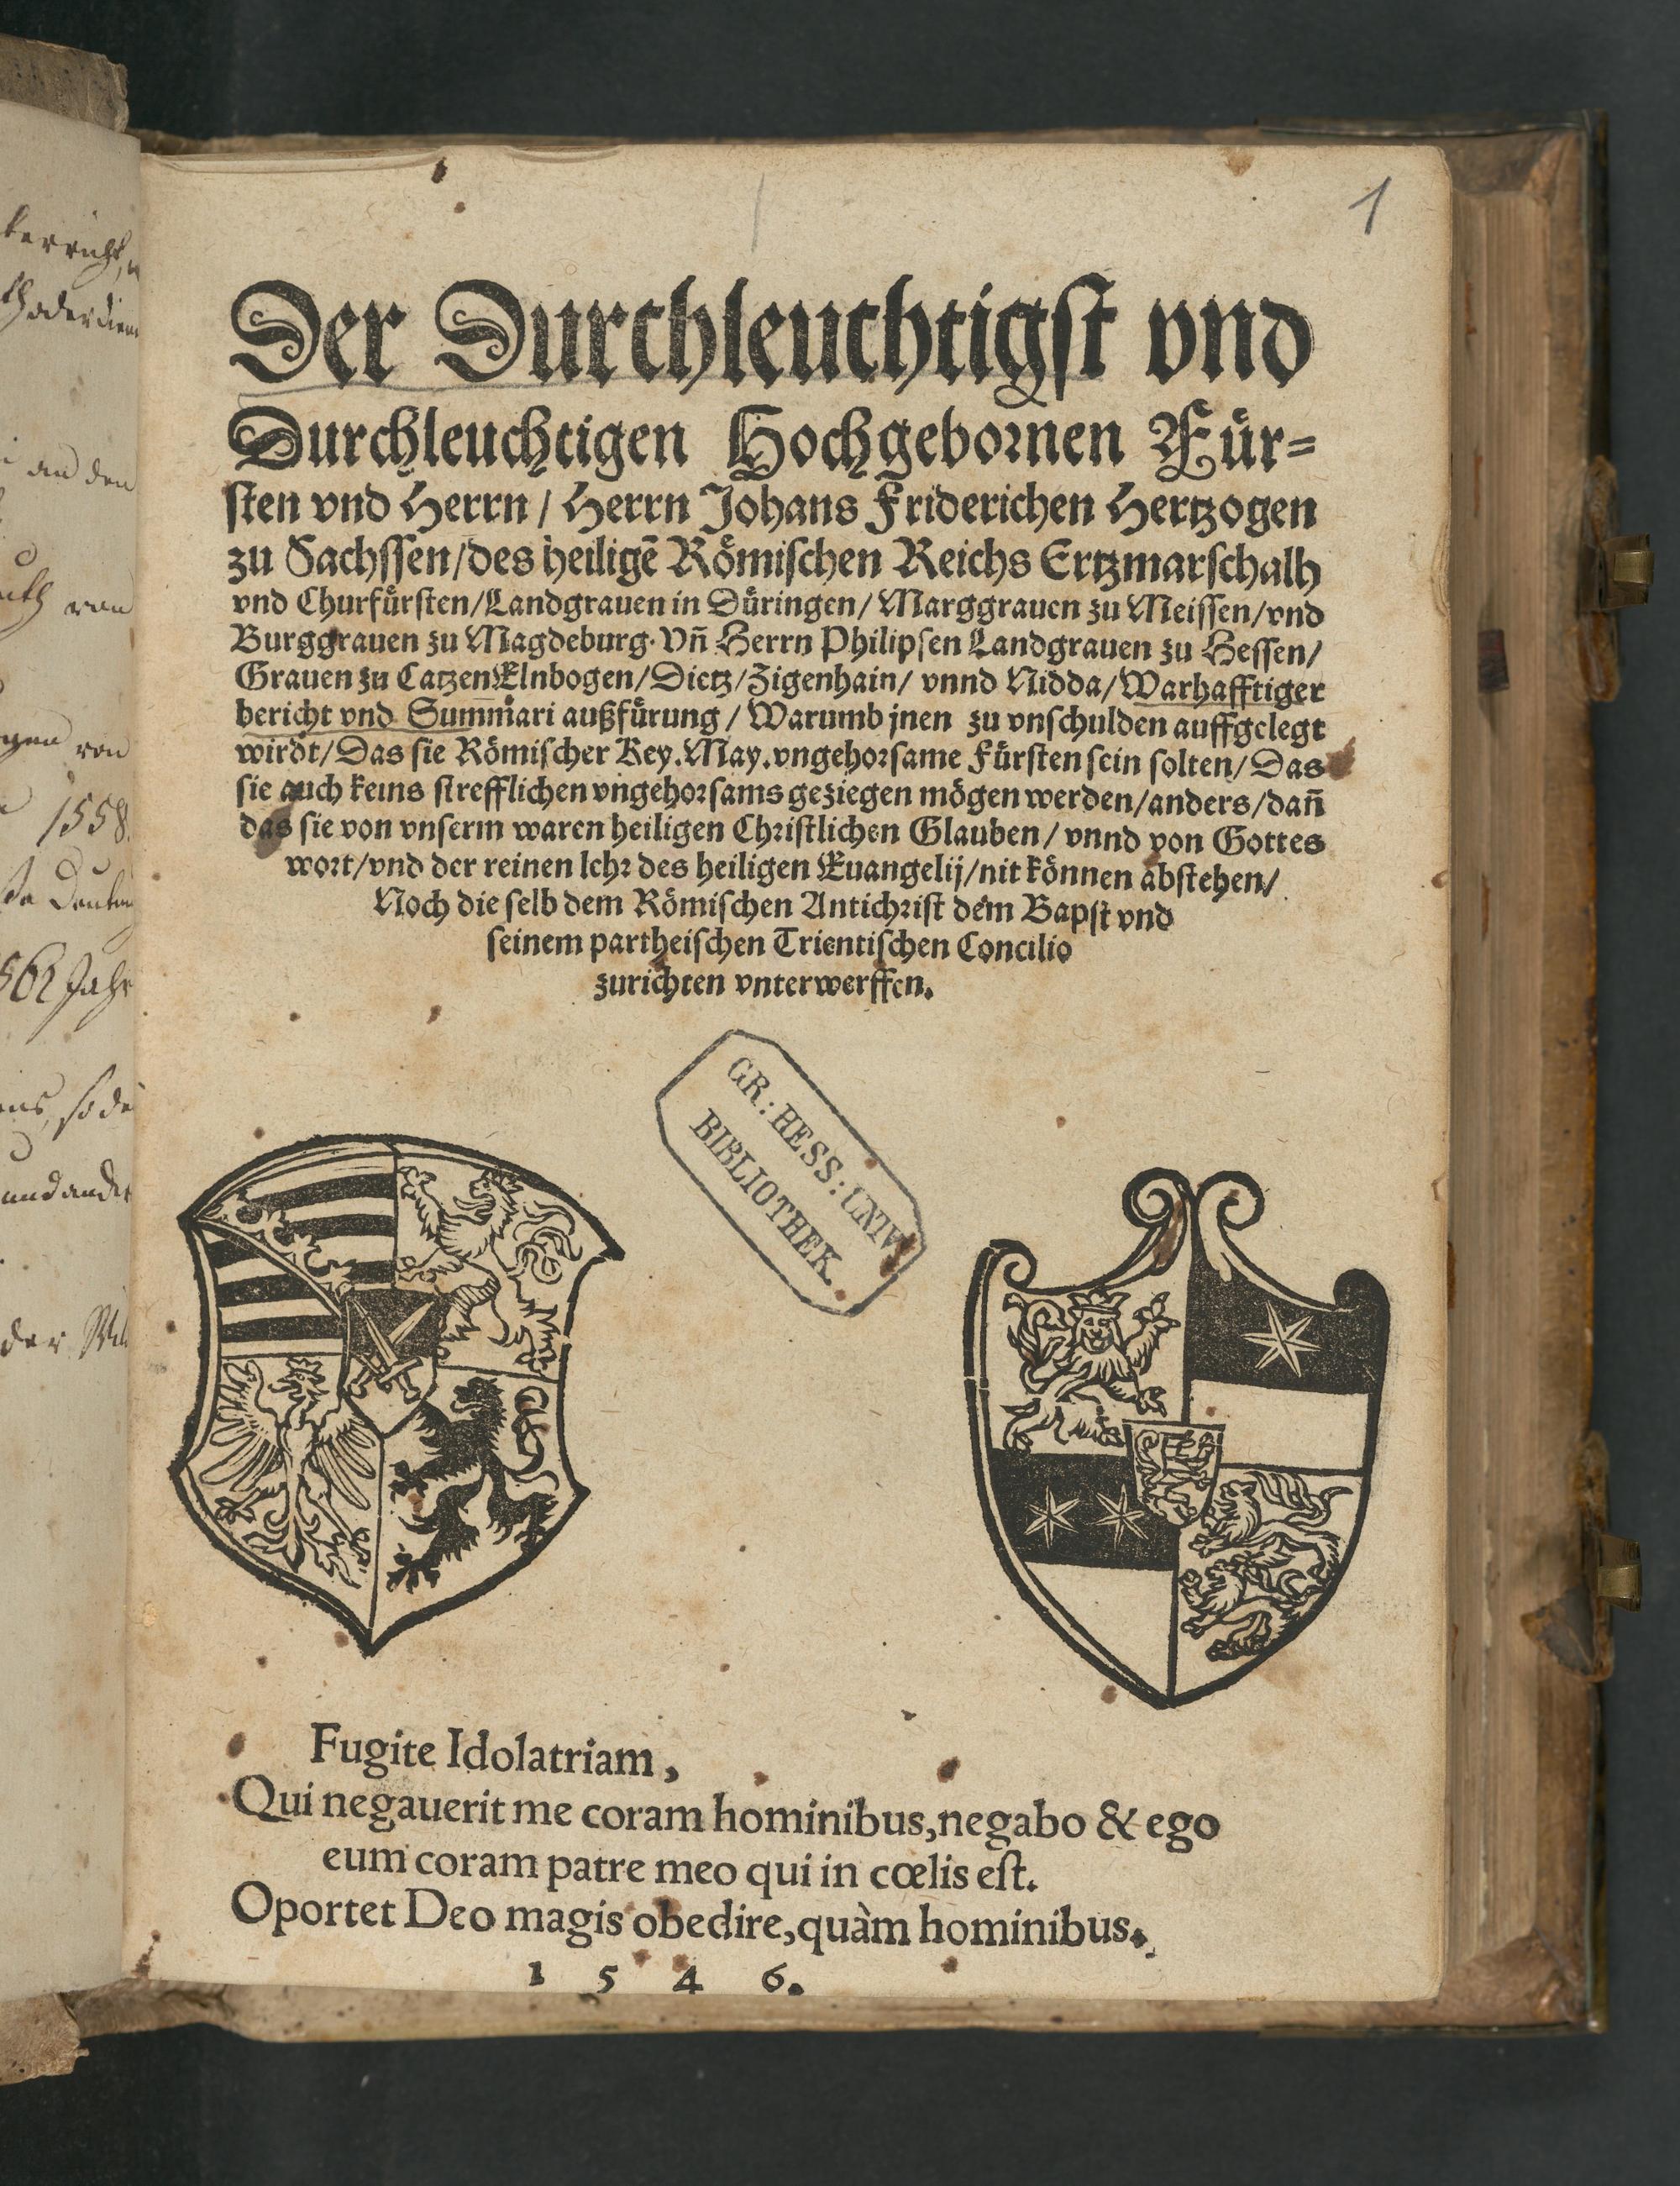 1
Der Durchleuchtigst vnd
Durchleuchtigen Hochgebornen Für=
sten vnd Herrn / Herrn Johans Friderichen Hertzogen
zu Sachssen/des heiligē Römischen Reichs Ertzmarschalh
vnd Churfürsten/Landgrauen in Düringen/Marggrauen zu Meissen/vnd
Burggrauen zu Magdeburg. Vñ Herrn Philipsen Landgrauen zu Hessen/
Grauen zu CatzenElnbogen/Dietz/Zigenhain/ vnnd Nidda/Warhafftiger
bericht vnd Summari außfürung / Warumb jnen zu vnschulden auffgelegt
wirdt/Das sie Römischer Key.May.vngehorsame Fürsten sein solten/Das
sie auch keins strefflichen vngehorsams geziegen mögen werden/anders/dañ
das sie von vnserm waren heiligen Christlichen Glauben/ vnnd von Gottes
wort/vnd der reinen lehr des heiligen Euangelij/nit können abstehen/
Noch die selb dem Römischen Antichrist dem Bapst vnd
seinem partheischen Trientischen Concilio
zurichten vnterwerffen.
GR: HESS: UNIV.
BIBLIOTHEK.
Fugite Idolatriam,
Qui negauerit me coram hominibus,negabo & ego
eum coram patre meo qui in cœlis est.
Oportet Deo magis obedire,quàm hominibus.
1 5 4 6.
an den
von
1558.
Jahr
der